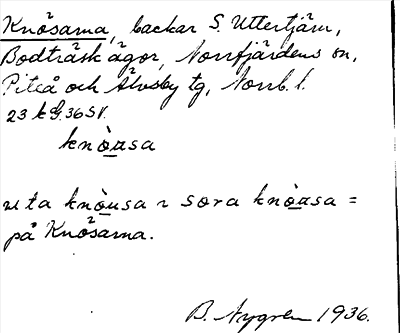 Knösarna, backar S. Uttertjärn,
Bodträsk ägor, Norrfjärdens sn,
Piteå och Älvsby tg, Norrb. l.
36 SV.
knò̱usa
uta knò̱usa sora knò̱usa =
på Knösarna.
B. Nygren 1936.